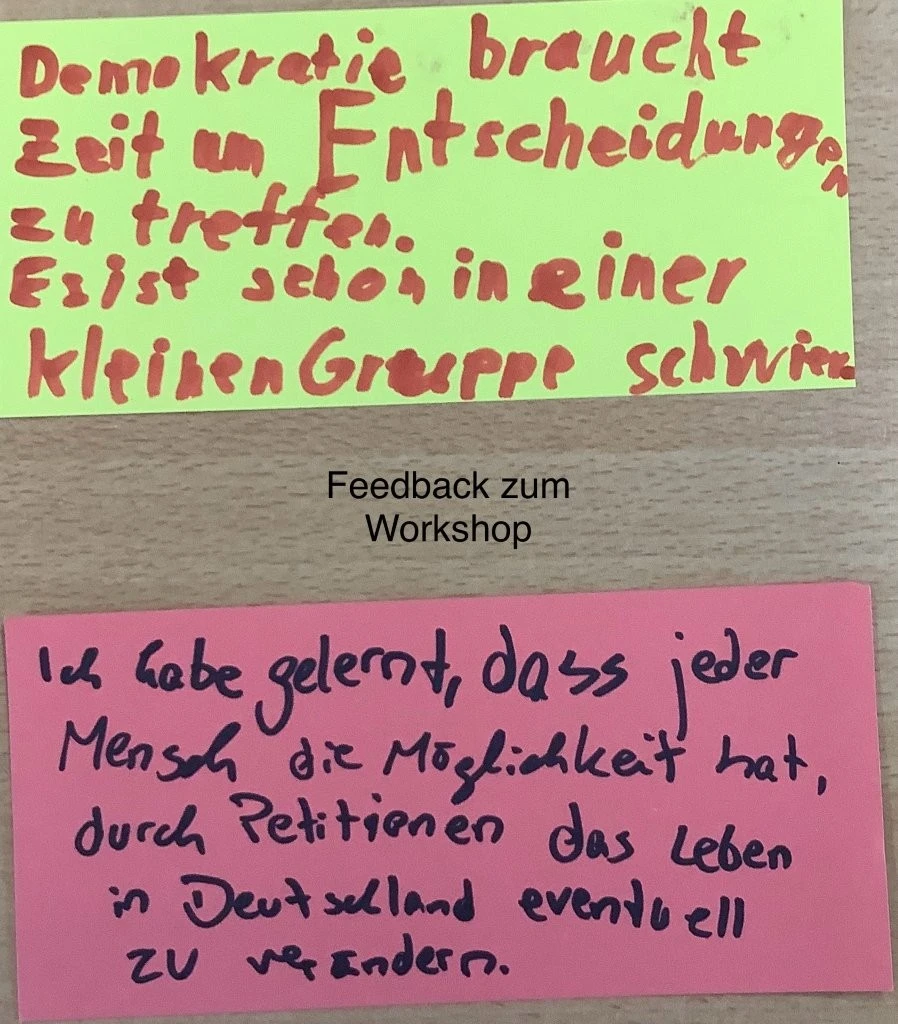 Demokratie braucht
Zeit um Entscheidungen
zu treffen.
Es ist schon in einer
kleinen Gruppe schwier
Feedback zum
Workshop
Ich habe gelernt, dass jeder
Mensch die Möglichkeit hat,
durch Petitionen das Leben
in Deutschland eventuell
zu verändern.